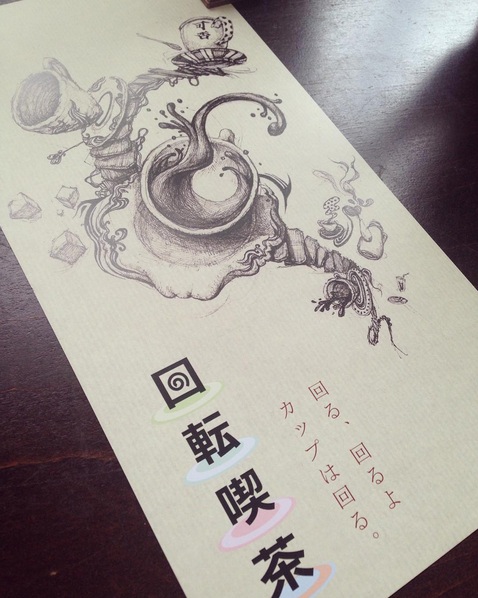 可否
回る、回るよ
カップは回る。
回転喫茶